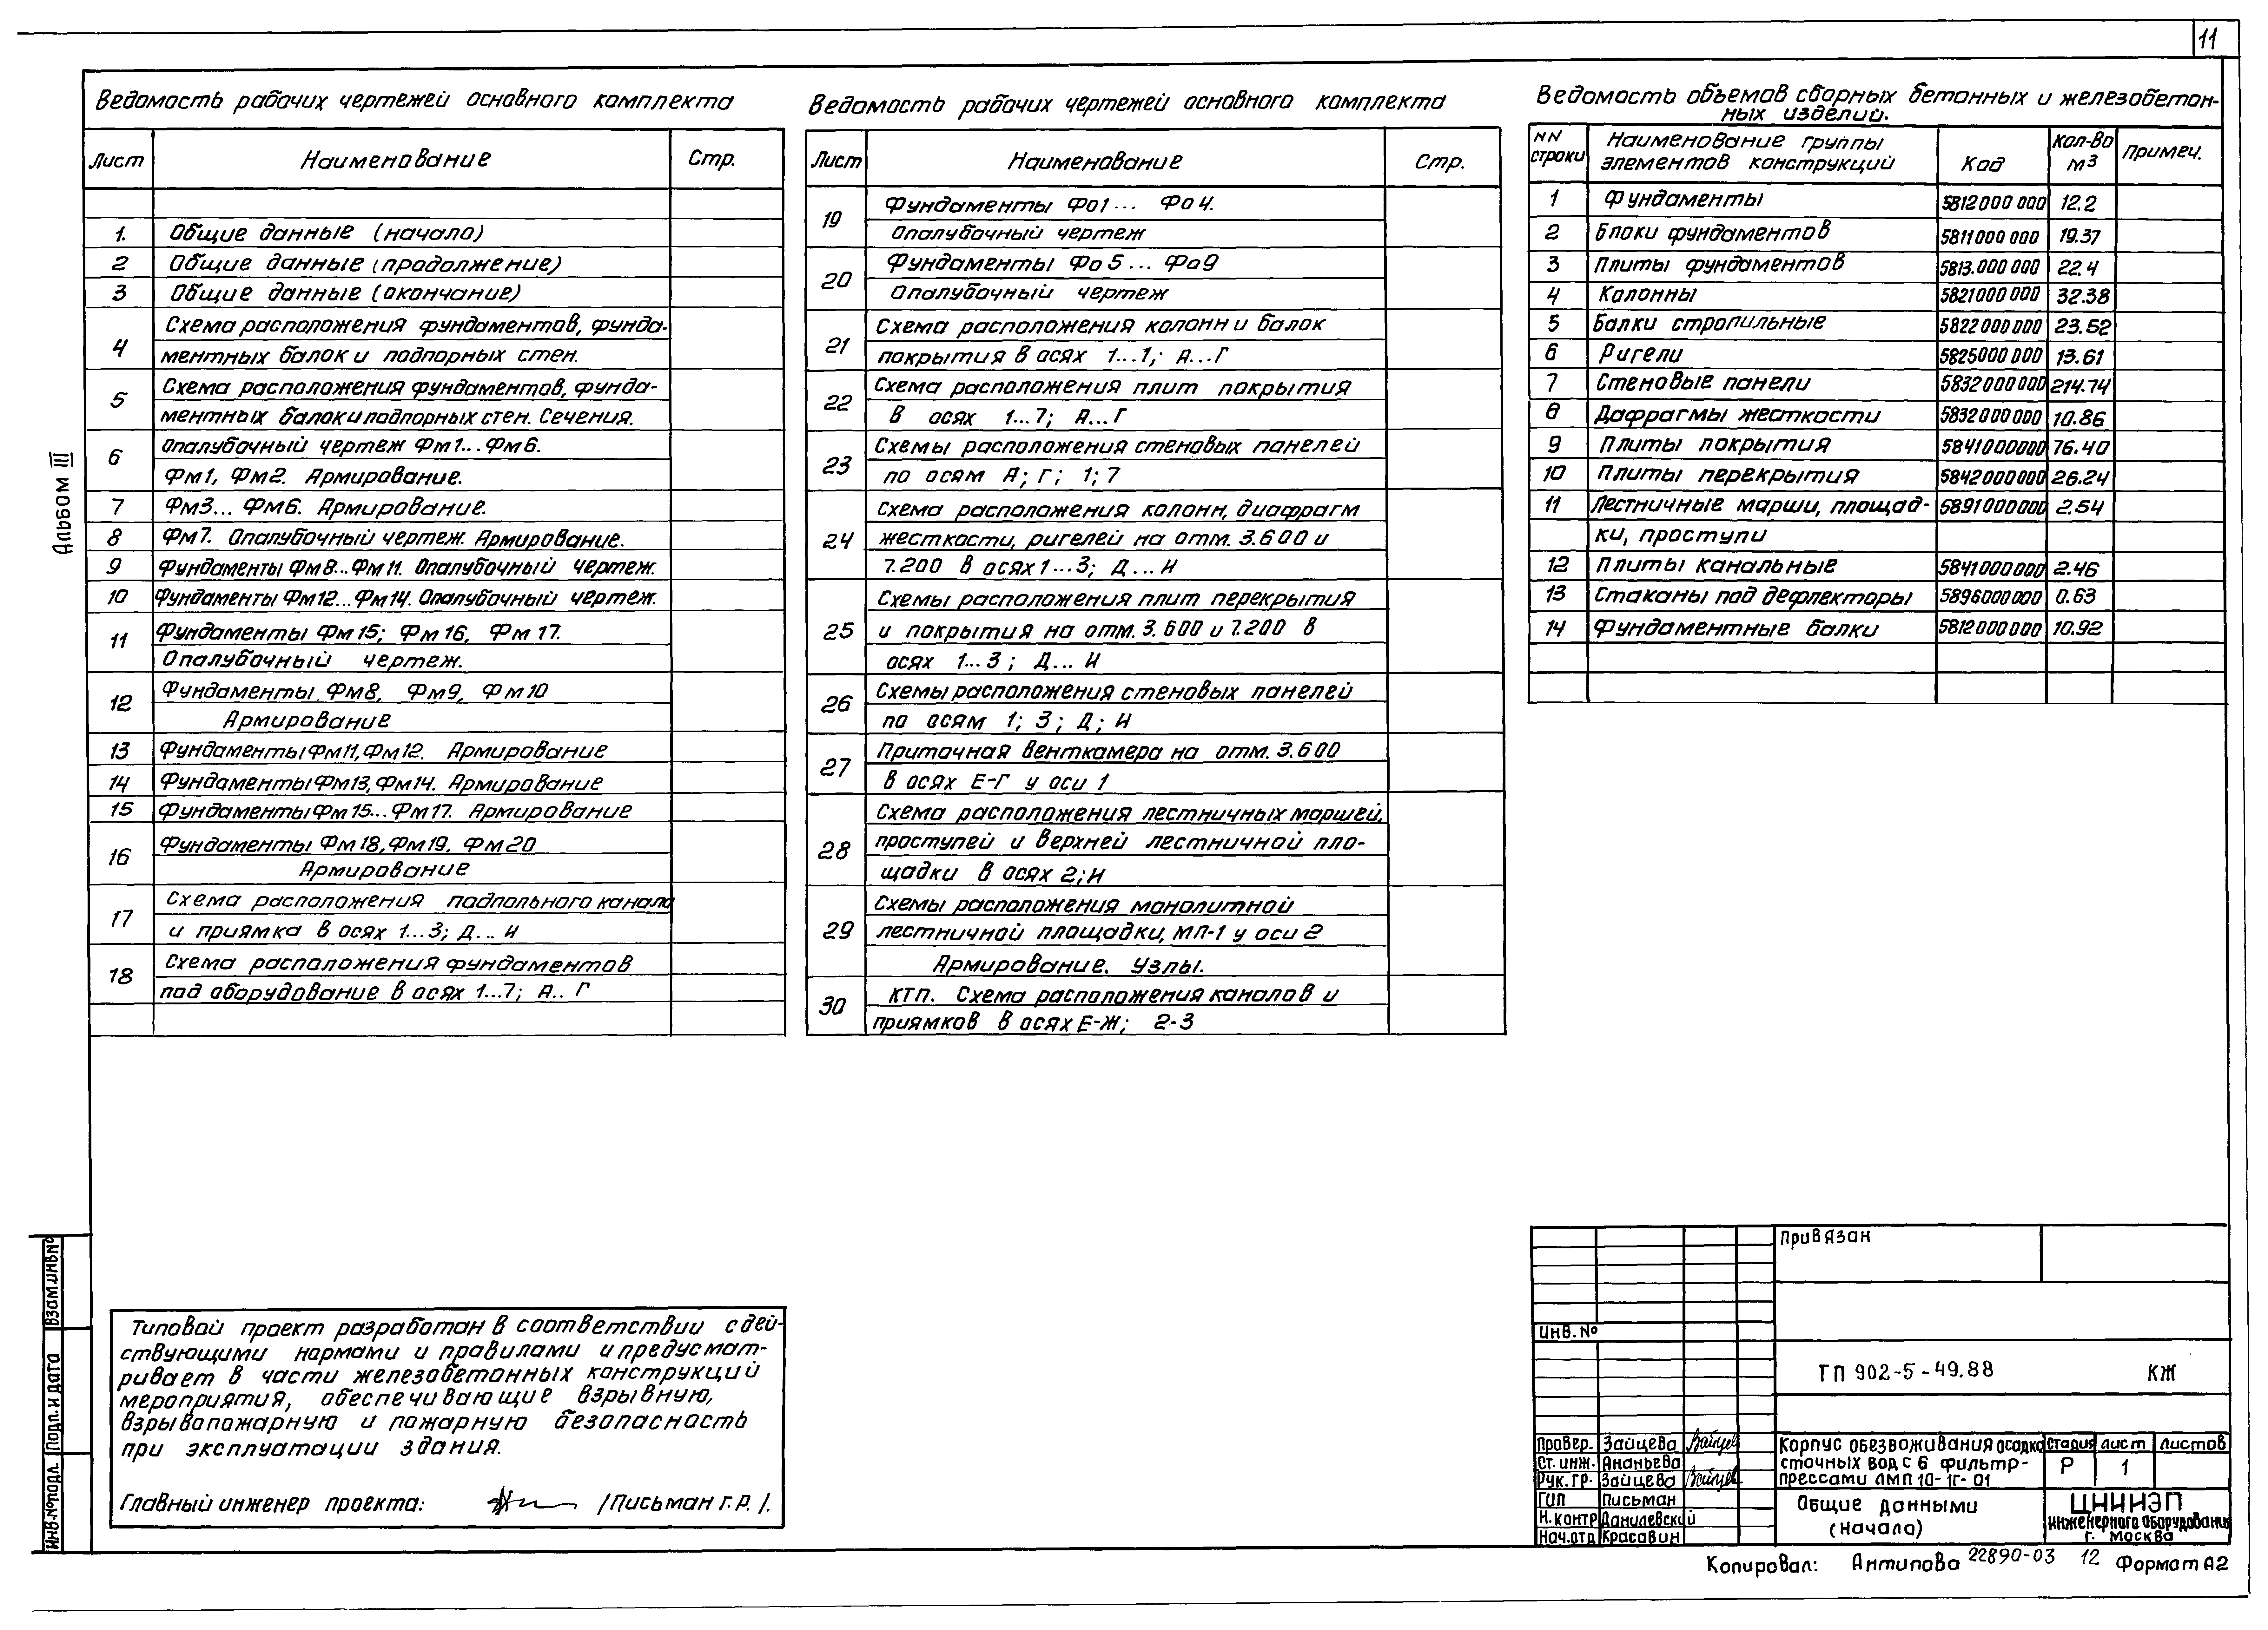 11
Альбом III
Ведомость рабочих чертежей основного комплекта
Лист Наименование Стр.
1. Общие данные (начало)
2 Общие данные (продолжение)
3 Общие данные (окончание)
4 Схема расположения фундаментов, фунда-
ментных балок и подпорных стен.
5 Схема расположения фундаментов, фунда-
ментных балок и подпорных стен. Сечения.
6 Опалубочный чертеж Фм1... Фм6.
Фм1, Фм2. Армирование.
7 Фм3... Фм6. Армирование.
8 Фм7. Опалубочный чертеж. Армирование.
9 Фундаменты Фм8...Фм11. Опалубочный чертеж.
10 Фундаменты Фм12...Фм14. Опалубочный чертеж.
11 Фундаменты Фм15; Фм16, Фм17.
Опалубочный чертеж.
12 Фундаменты Фм8, Фм9, Фм10
Армирование
13 Фундаменты Фм11, Фм12. Армирование
14 Фундаменты Фм13, Фм14. Армирование
15 Фундаменты Фм15... Фм17. Армирование
16 Фундаменты Фм18, Фм19, Фм20
Армирование
17 Схема расположения подпольного канала
и приямка в осях 1...3; Д... И
18 Схема расположения фундаментов
под оборудование в осях 1...7; А.. Г
Ведомость рабочих чертежей основного комплекта
Лист Наименование Стр.
19 Фундаменты Фо1... Фо4.
Опалубочный чертеж
20 Фундаменты Фо5... Фо9
Опалубочный чертеж
21 Схема расположения колонн и балок
покрытия в осях 1...1; А...Г
22 Схема расположения плит покрытия
в осях 1...7; А...Г
23 Схемы расположения стеновых панелей
по осям А; Г; 1; 7
24 Схема расположения колонн, диафрагм
жесткости, ригелей на отм. 3.600 и
7.200 в осях 1...3; Д...И
25 Схемы расположения плит перекрытия
и покрытия на отм. 3.600 и 7.200 в
осях 1...3; Д... И
26 Схемы расположения стеновых панелей
по осям 1; 3; Д; И
27 Приточная венткамера на отм. 3.600
в осях Е-Г у оси 1
28 Схема расположения лестничных маршей,
проступей и верхней лестничной пло-
щадки в осях 2; И
29 Схемы расположения монолитной
лестничной площадки, МП-1 у оси 2
Армирование. Узлы.
30 КТП. Схема расположения каналов и
приямков в осях Е-Ж; 2-3
Ведомость объемов сборных бетонных и железобетон-
ных изделий.
NN строки Наименование группы элементов конструкций Код Кол-во м3 Примеч.
1 Фундаменты 5812000000 12.2
2 Блоки фундаментов 5811000000 19.37
3 Плиты фундаментов 5813.000000 22.4
4 Колонны 5821000000 32.38
5 Балки стропильные 5822000000 23.52
6 Ригели 5825000000 13.61
7 Стеновые панели 5832000000 214.74
8 Дафрагмы жесткости 5832000000 10.86
9 Плиты покрытия 5841000000 76.40
10 Плиты перекрытия 5842000000 26.24
11 Лестничные марши, площад- 5891000000 2.54
ки, проступи
12 Плиты канальные 5841000000 2.46
13 Стаканы под дефлекторы 5896000000 0.63
14 Фундаментные балки 5812000000 10.92
Типовой проект разработан в соответствии с дей-
ствующими нормами и правилами и предусмат-
ривает в части железобетонных конструкций
мероприятия, обеспечивающие взрывную,
взрывопожарную и пожарную безопасность
при эксплуатации здания.
Главный инженер проекта: /Письман Г.Р./.
Взам.инв№
Подп. и дата
Инв.№ подл.
Привязан
Инв.№
ТП 902-5-49.88 КЖ
Провер. Зайцева
Ст. инж. Ананьева
Рук. гр. Зайцева
ГИП Письман
Н.контр Данилевский
Нач.отд Красавин
Корпус обезвоживания осадка
сточных вод с 6 фильтр-
прессами ЛМП 10-1Г-01
Стадия Лист Листов
Р 1
Общие данными
(Начало)
ЦНИИЭП
инженерного оборудования
г. Москва
Копировал: Антипова 22890-03 12 Формат А2